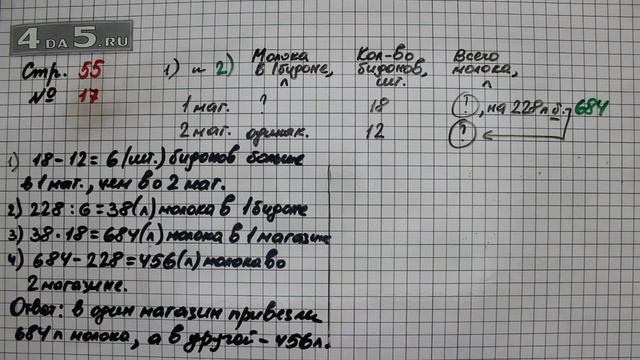 4DA5.RU
Стр. 55
№ 17
1) и 2)
Молока в 1 бидоне, л
Кол-во бидонов, шт.
Всего молока, л
1 маг. ? 18 ?, на 228 л б. 684
2 маг. одинак. 12 ?
1) 18 - 12 = 6 (шт.) бидонов больше
в 1 маг., чем во 2 маг.
2) 228 : 6 = 38 (л) молока в 1 бидоне
3) 38 · 18 = 684 (л) молока в 1 магазине
4) 684 - 228 = 456 (л) молока во
2 магазине.
Ответ: в один магазин привезли
684 л молока, а в другой - 456 л.